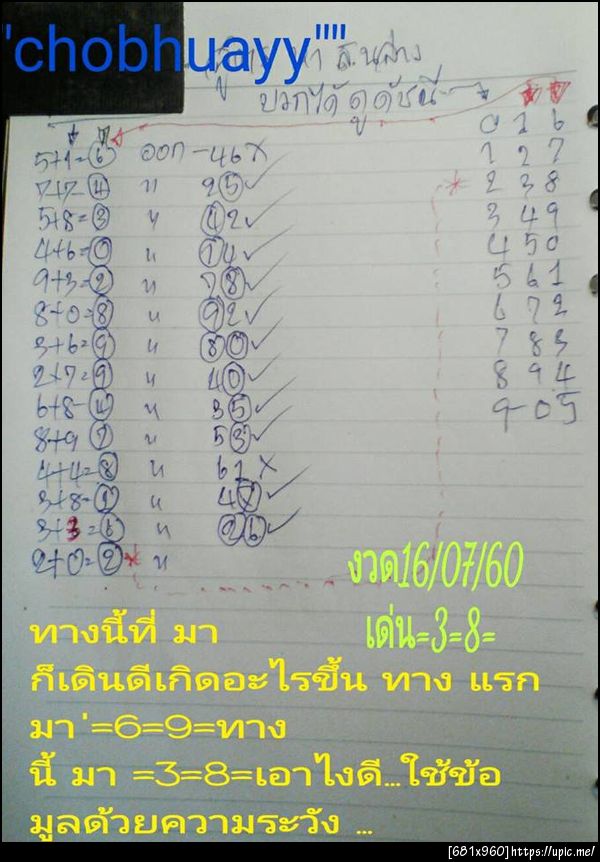 'chobhuayy""
บวกได้ ดูดัชนี
0 1 6
1 2 7
2 3 8
3 4 9
4 5 0
5 6 1
6 7 2
7 8 3
8 9 4
9 0 5
5+1=6 ออก - 46 x
7+7=4 " 25 ✓
5+8=3 " 42 ✓
4+6=0 " 14 ✓
9+3=2 " 78 ✓
8+0=8 " 92 ✓
3+6=9 " 80 ✓
2+7=9 " 40 ✓
6+8=4 " 35 ✓
8+9 7 " 53 ✓
4+4=8 " 61 x
3+8=1 " 47 ✓
3+3=6 " 26 ✓
2+0=2 "
งวด16/07/60
เด่น=3=8=
ทางนี้ที่ มา
ก็เดินดีเกิดอะไรขึ้น ทาง แรก
มา '=6=9=ทาง
นี้ มา =3=8=เอาไงดี...ใช้ข้อ
มูลด้วยความระวัง ...
[681x960]https://upic.me/